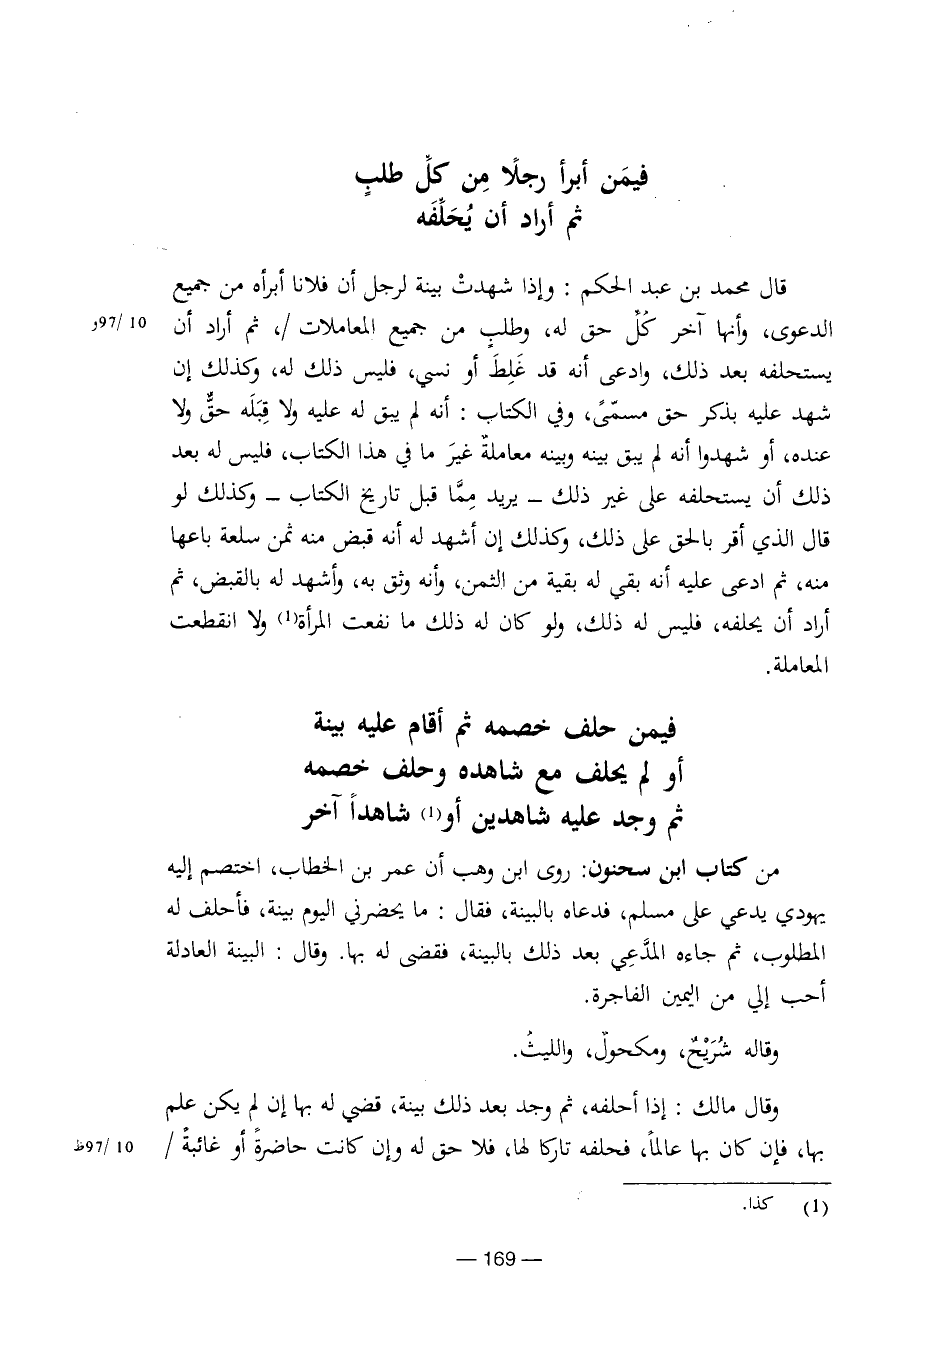 فيمَن أبرأ رجلًا مِن كلِّ طلبٍ
ثم أراد أن يُحَلِّفَه
قال محمد بن عبد الحكم : وإذا شهدتْ بينة لرجل أن فلانا أبرأه من جميع
الدعوى، وأنها آخر كُلِّ حق له، وطلبٍ من جميع المعاملات /، ثم أراد أن
10 /97و
يستحلفه بعد ذلك، وادعى أنه قد غَلِطَ أو نسي، فليس ذلك له، وكذلك إن
شهد عليه بذكر حق مسمّىً، وفي الكتاب : أنه لم يبق له عليه ولا قِبَلَه حقٌّ ولا
عنده، أو شهدوا أنه لم يبق بينه وبينه معاملةٌ غيرَ ما في هذا الكتاب، فليس له بعد
ذلك أن يستحلفه على غير ذلك ــ يريد مِمَّا قبل تاريخ الكتاب ــ وكذلك لو
قال الذي أقر بالحق على ذلك، وكذلك إن أشهد له أنه قبض منه ثمن سلعة باعها
منه، ثم ادعى عليه أنه بقي له بقية من الثمن، وأنه وثق به، وأشهد له بالقبض، ثم
أراد أن يحلفه، فليس له ذلك، ولو كان له ذلك ما نفعت المرأة(1) ولا انقطعت
المعاملة.
فيمن حلف خصمه ثم أقام عليه بينة
أو لم يحلف مع شاهده وحلف خصمه
ثم وجد عليه شاهدين أو(1) شاهداً آخر
من كتاب ابن سحنون: روى ابن وهب أن عمر بن الخطاب، اختصم إليه
يهودي يدعي على مسلم، فدعاه بالبينة، فقال : ما يحضرني اليوم بينة، فأحلف له
المطلوب، ثم جاءه المدَّعِي بعد ذلك بالبينة، فقضى له بها. وقال : البينة العادلة
أحب إلي من اليمين الفاجرة.
وقاله شُرَيْحٌ، ومكحولٌ، والليثُ.
وقال مالك : إذا أحلفه، ثم وجد بعد ذلك بينة، قضي له بها إن لم يكن علم
بها، فإن كان بها عالماً، فحلفه تاركا لها، فلا حق له وإن كانت حاضرةً أو غائبةً /
10 /97ظ
(1) كذا.
— 169 —